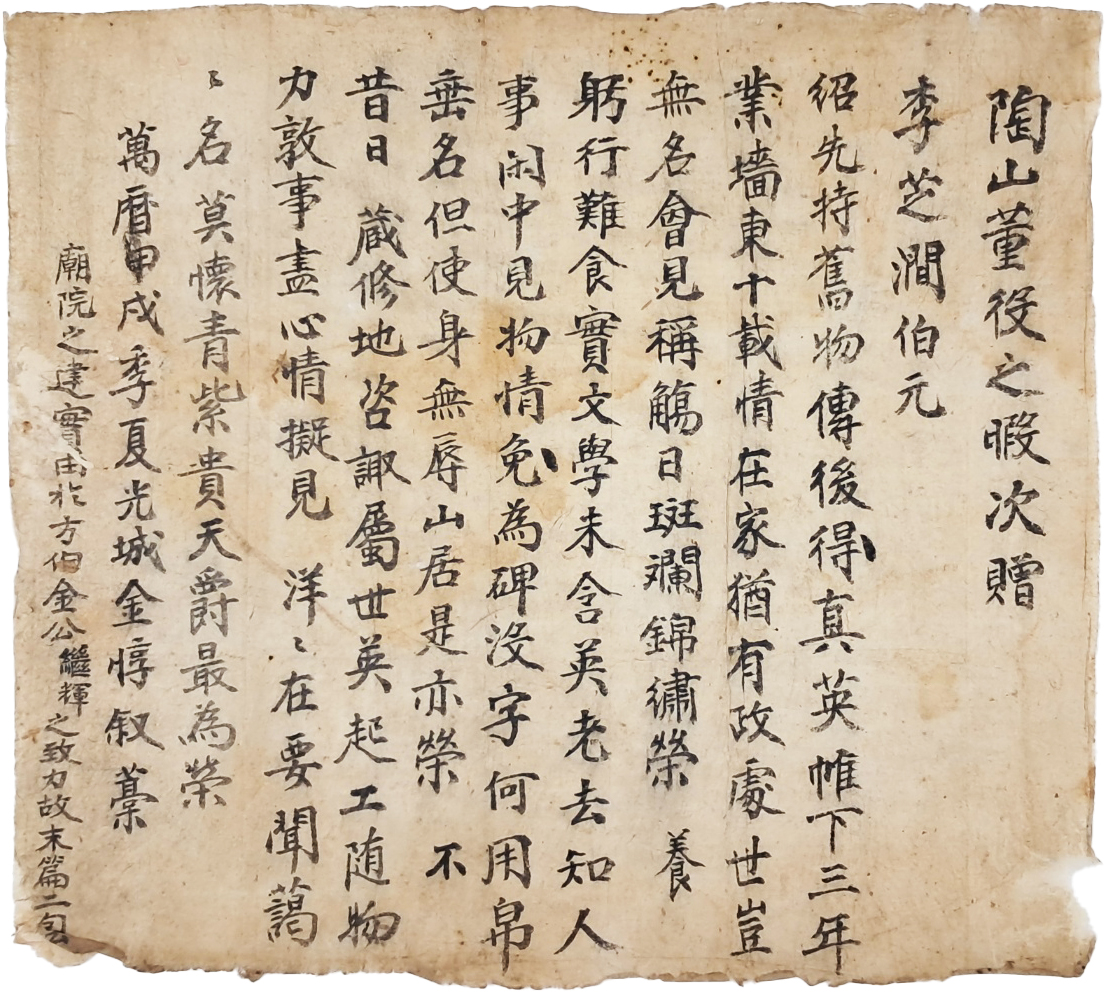 陶山董役之暇次贈
李芝澗伯元
紹先持舊物傳後得真英帷下三年
業墻東十載情在家猶有政處世豈
無名會見稱觴日斑斕錦繡榮 養
躬行難食實文學未含英老去知人
事閑中見物情免為碑沒字何用帛
垂名但使身無辱山居是亦榮 不
昔日 蔵修地咨諏屬世英起工随物
力敦事盡心情擬見 洋〻在要聞藹
〻名莫懷青紫貴天爵最為榮
萬曆甲戌季夏光城金惇叙藁
廟院之建實由於方伯金公繼輝之致力故末篇二句云